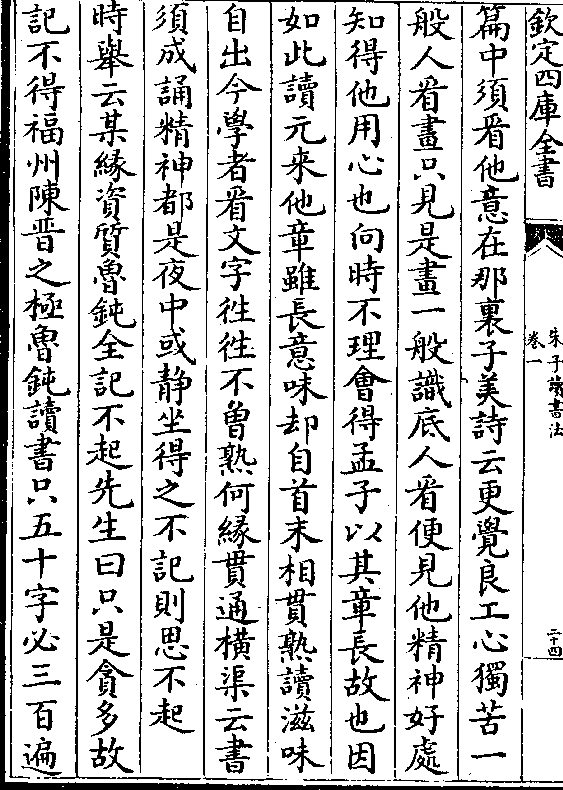 欽定四庫全書
朱子讀書法
卷一
二十四
篇中須看他意在那裏子美詩云更覺良工心獨苦一
般人看畫只見是畫一般識底人看便見他精神好處
知得他用心也向時不理會得孟子以其章長故也因
如此讀元來他章雖長意味却自首末相貫熟讀滋味
自出今學者看文字徃徃不曽熟何緣貫通橫渠云書
須成誦精神都是夜中或静坐得之不記則思不起
時舉云某緣資質魯鈍全記不起先生曰只是貪多故
記不得福州陳晋之極魯鈍讀書只五十字必三百遍